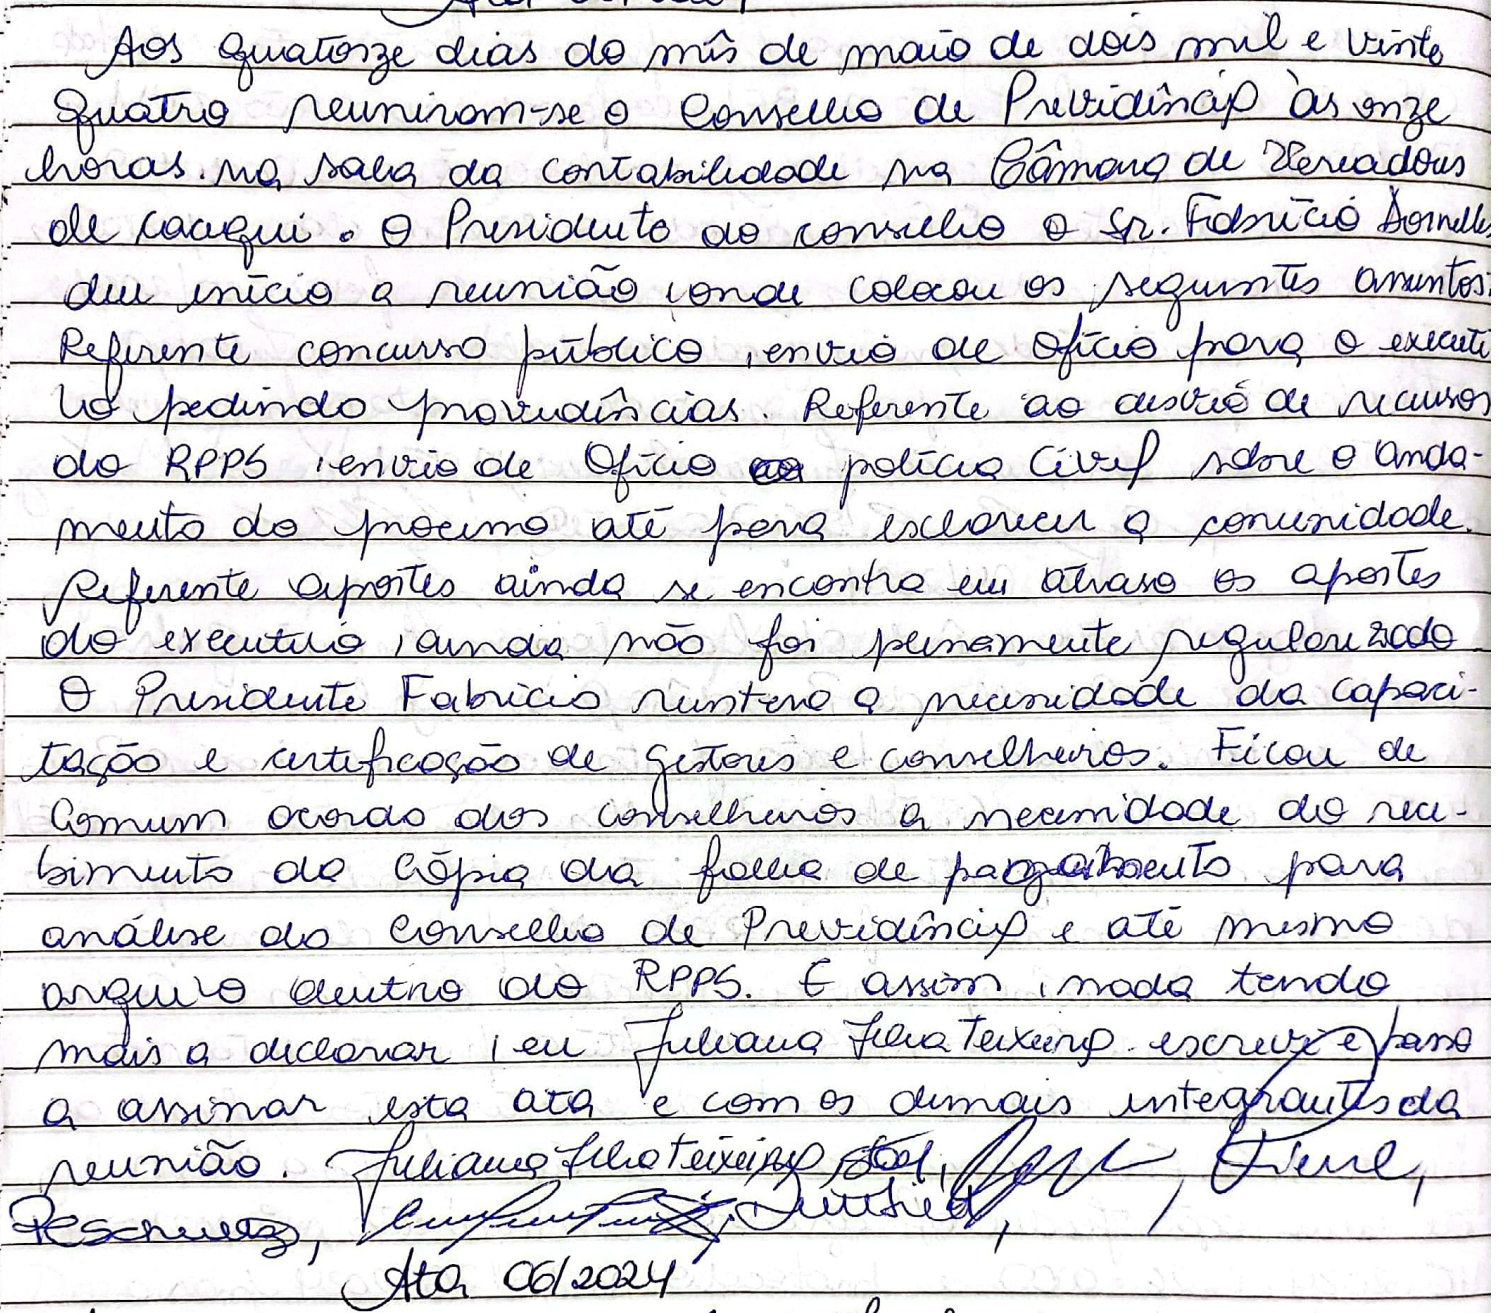 Aos quatorze dias do mês de maio de dois mil e vinte
quatro reuniram-se o Conselho de Previdência às onze
horas. na sala da contabilidade na Câmara de Vereadores
de cacequi. O Presidente do conselho o Sr. Fabrício Dornelles
deu início a reunião, onde colocou os seguintes assuntos:
Referente concurso público, envio de Ofício para o executi
vo pedindo providências. Referente ao desvio de recursos
do RPPS, envio de Ofício polícia Civil sobre o anda-
mento do processo até para esclarecer a comunidade.
Referente aportes ainda se encontra em atraso os aportes
do executivo, ainda não foi plenamente regularizado
O Presidente Fabrício reintera a necessidade da capaci-
tação e certificação de gestores e conselheiros. Ficou de
Comum acordo dos conselheiros a necessidade do rece-
bimento da Cópia da folha de pagamento para
análise do Conselho de Previdência e até mesmo
arquivo dentro do RPPS. E assim, nada tendo
mais a declarar, eu Juliana Teixeira escrevi e passo
a assinar esta ata e com os demais integrantes da
reunião. Juliana Teixeira
Ata 06/2024